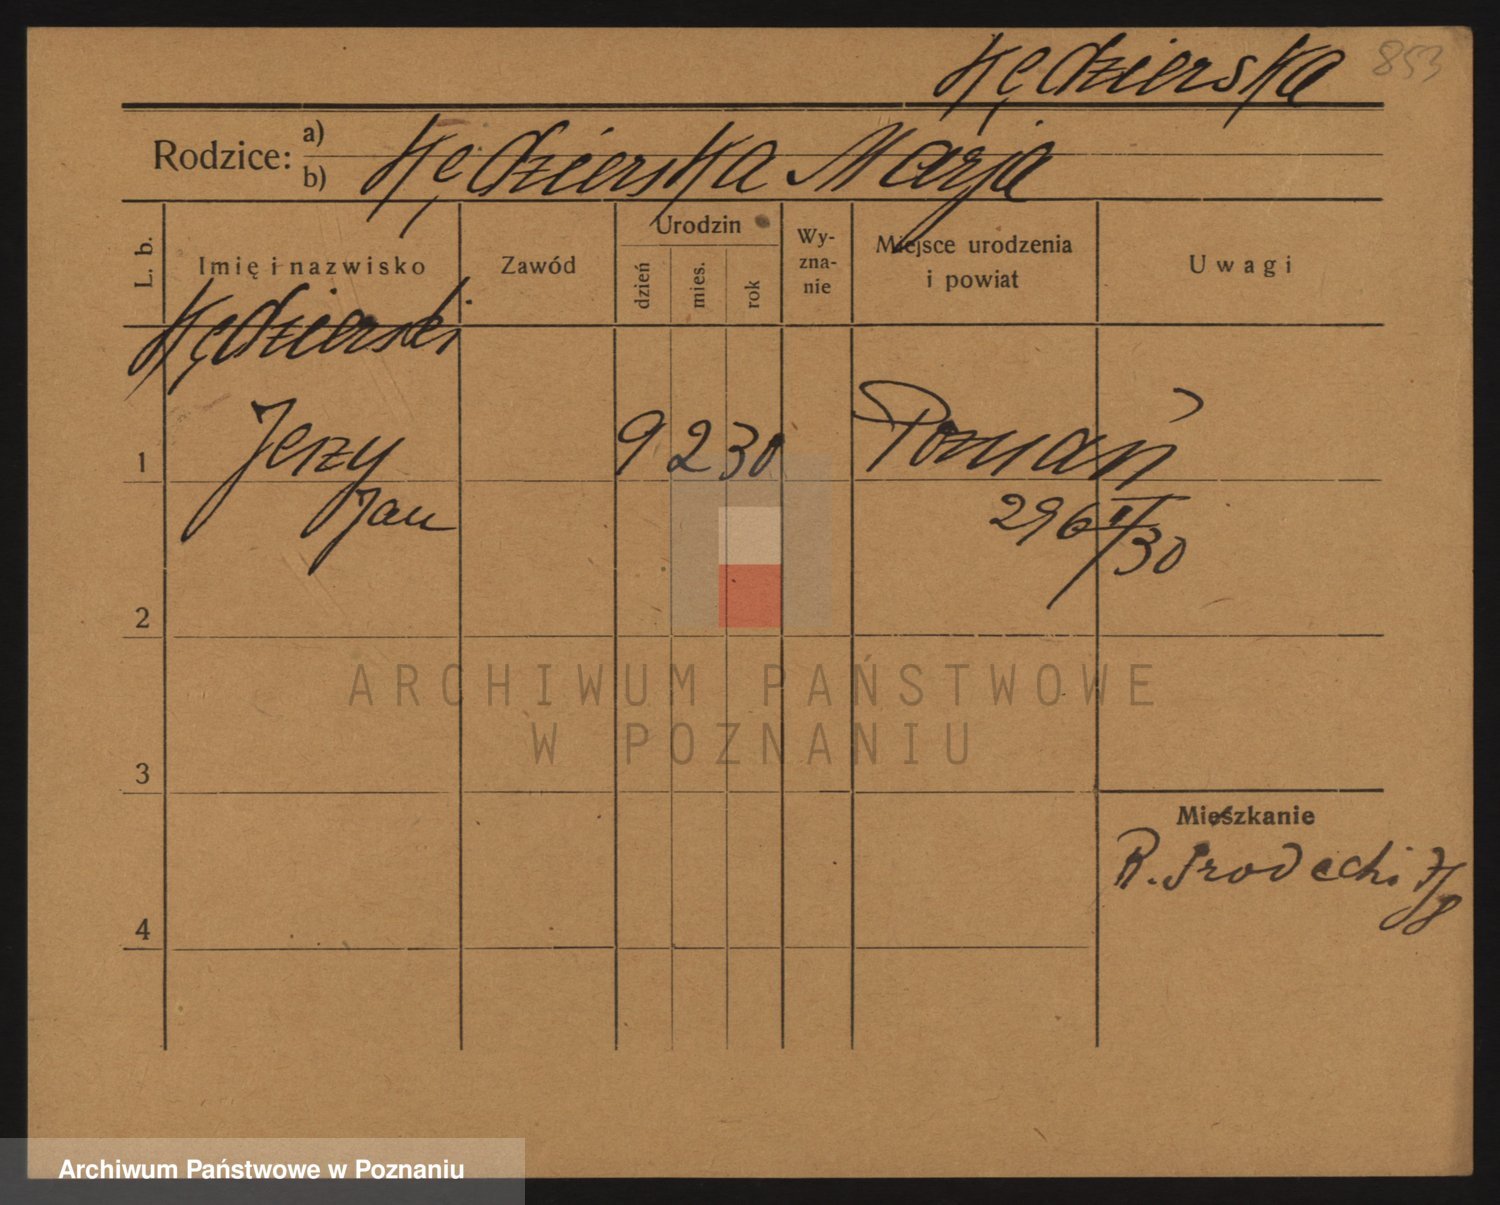 Kędzierska 853
Rodzice: a)
b) Kędzierska Marja
L. b.
Imię i nazwisko
Zawód
Urodzin
dzień
mies.
rok
Wy-
zna-
nie
Miejsce urodzenia
i powiat
Uwagi
Kędzierski
1 Jerzy 9 2 30 Poznań
Jan 296 II/30
2
ARCHIWUM PAŃSTWOWE
W POZNANIU
3
Mieszkanie
4
Archiwum Państwowe w Poznaniu